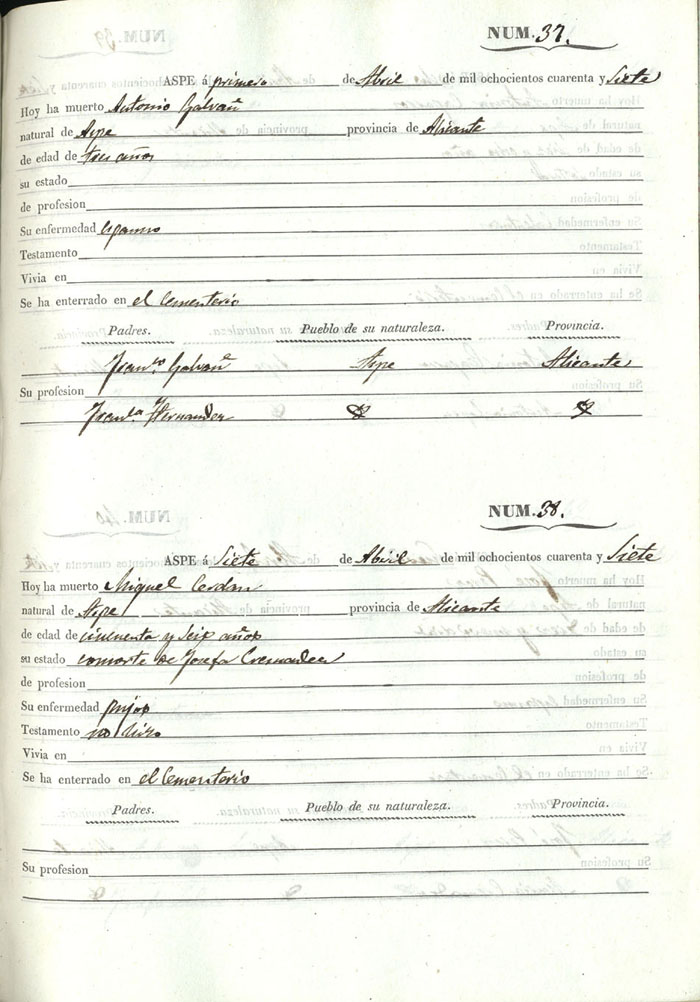 NUM. 37.
ASPE á primero de Abril de mil ochocientos cuarenta y Siete
Hoy ha muerto Antonio Galvañ
natural de Aspe provincia de Alicante
de edad de tres años
su estado
de profesion
Su enfermedad espasmo
Testamento
Vivia en
Se ha enterrado en el Cementerio
Padres. Pueblo de su naturaleza. Provincia.
Franco. Galvañ Aspe Alicante
Su profesion
Franca Hernandez
NUM. 38.
ASPE á Siete de Abril de mil ochocientos cuarenta y Siete
Hoy ha muerto Miguel Cerdan
natural de Aspe provincia de Alicante
de edad de cincuenta y Seis años
su estado consorte de Josefa
de profesion
Su enfermedad pujos
Testamento no hizo
Vivia en
Se ha enterrado en el Cementerio
Padres. Pueblo de su naturaleza. Provincia.
Su profesion